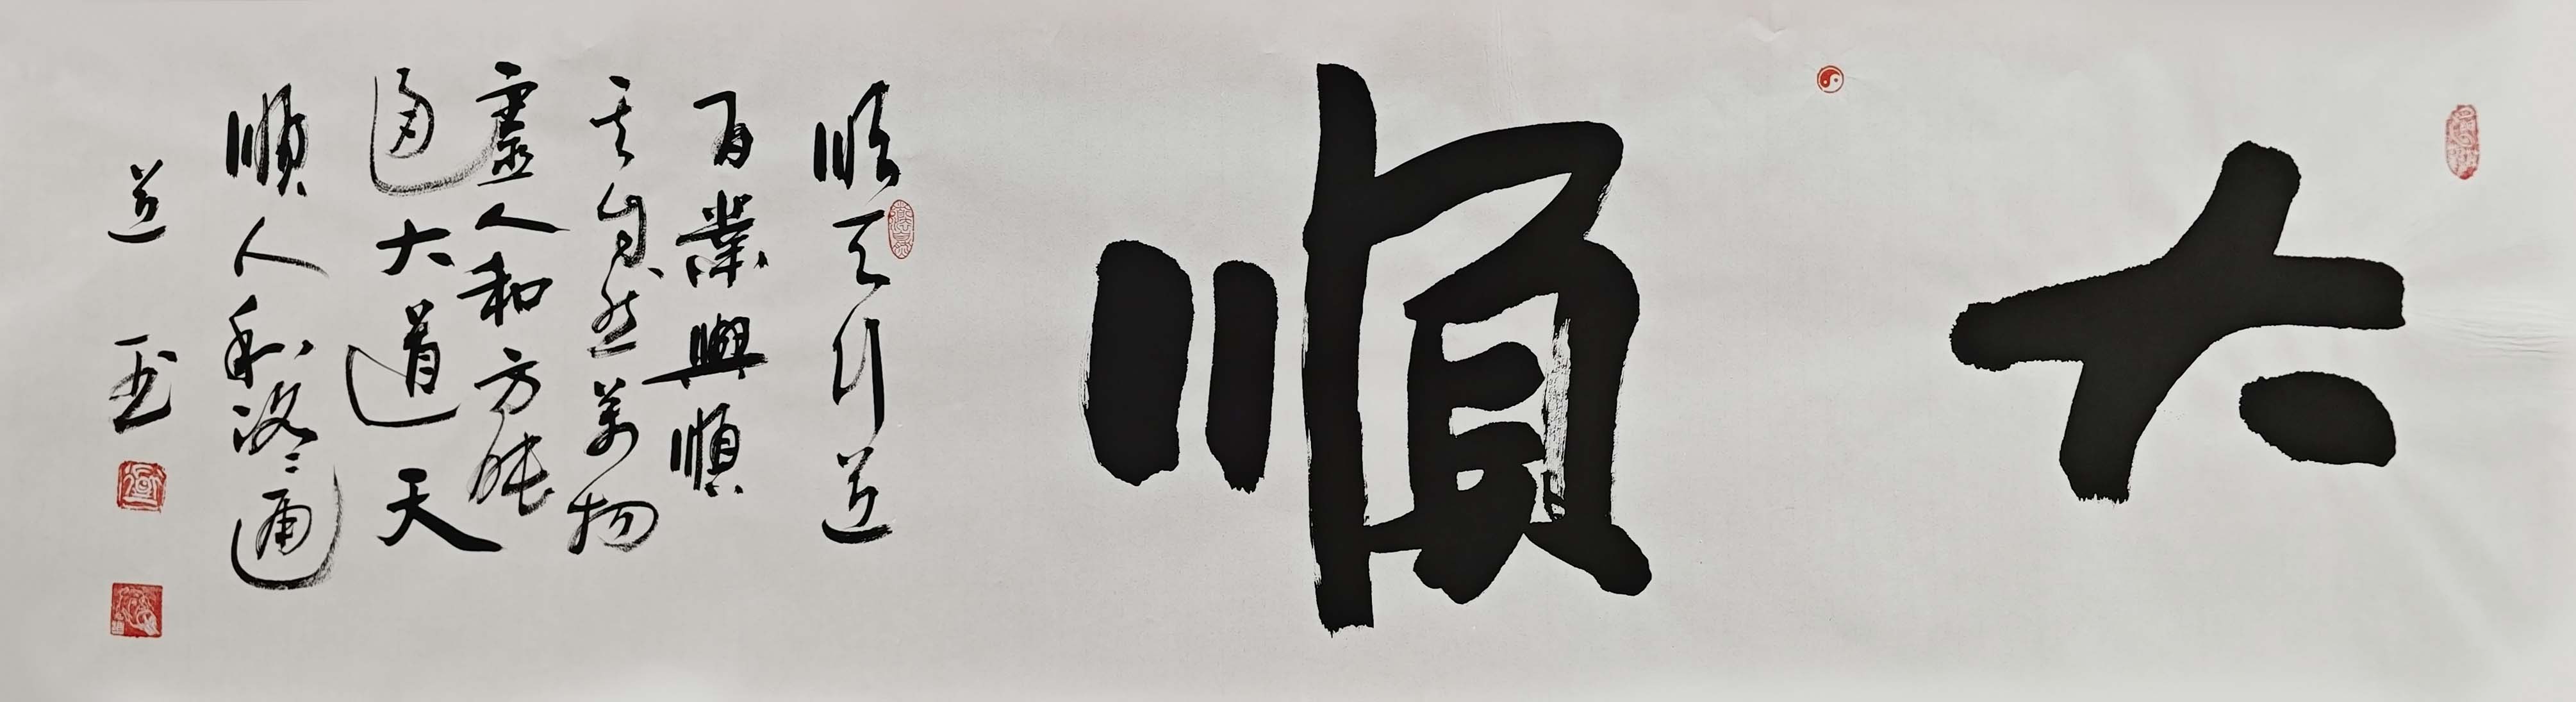 大順
順天行道
百業興順
其自然萬物
靈人和方能
通大道天
順人和路々通
道